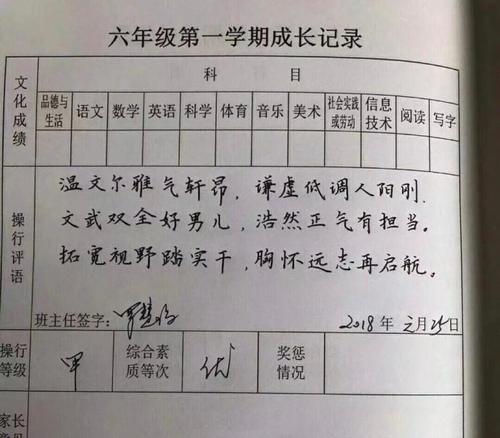 六年级第一学期成长记录
文化成绩
科 目
品德与生活 语文 数学 英语 科学 体育 音乐 美术 社会实践或劳动 信息技术 阅读 写字
操行评语
温文尔雅气轩昂，谦虚低调人阳刚，
文武双全好男儿，浩然正气有担当。
拓宽视野踏实干，胸怀远志再启航。
班主任签字：
2018 年 元 月 25 日
操行等级 甲 综合素质等次 优 奖惩情况
家长